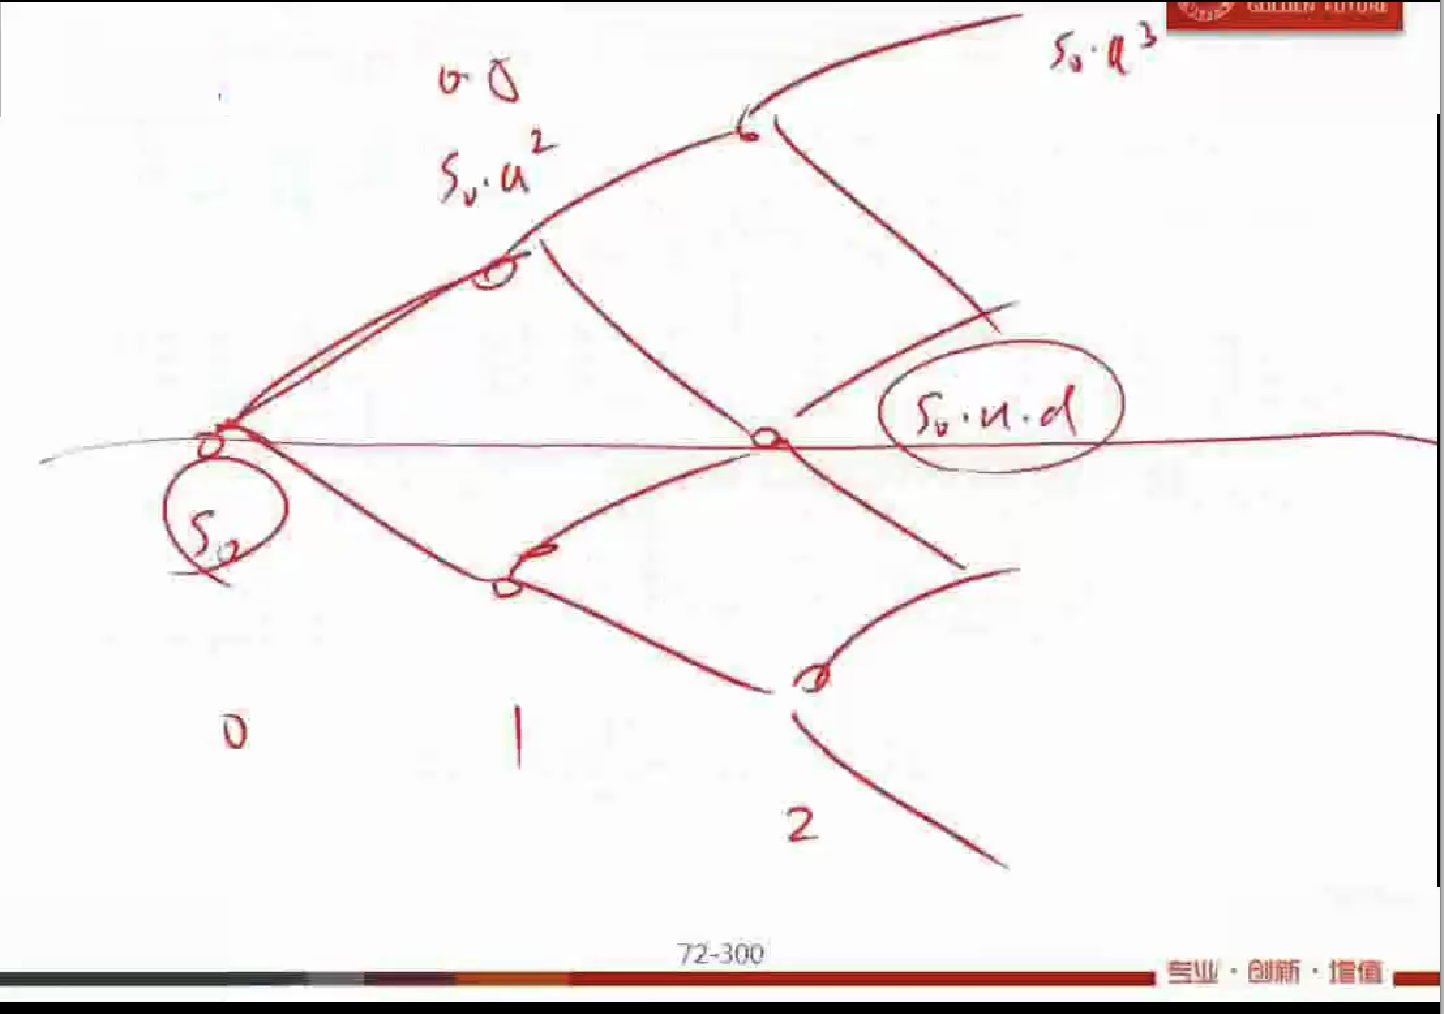 GOLDEN FUTURE
S₀·u³
0.5
S₀·u²
S₀·u·d
S₀
0
1
2
72-300
专业·创新·增值